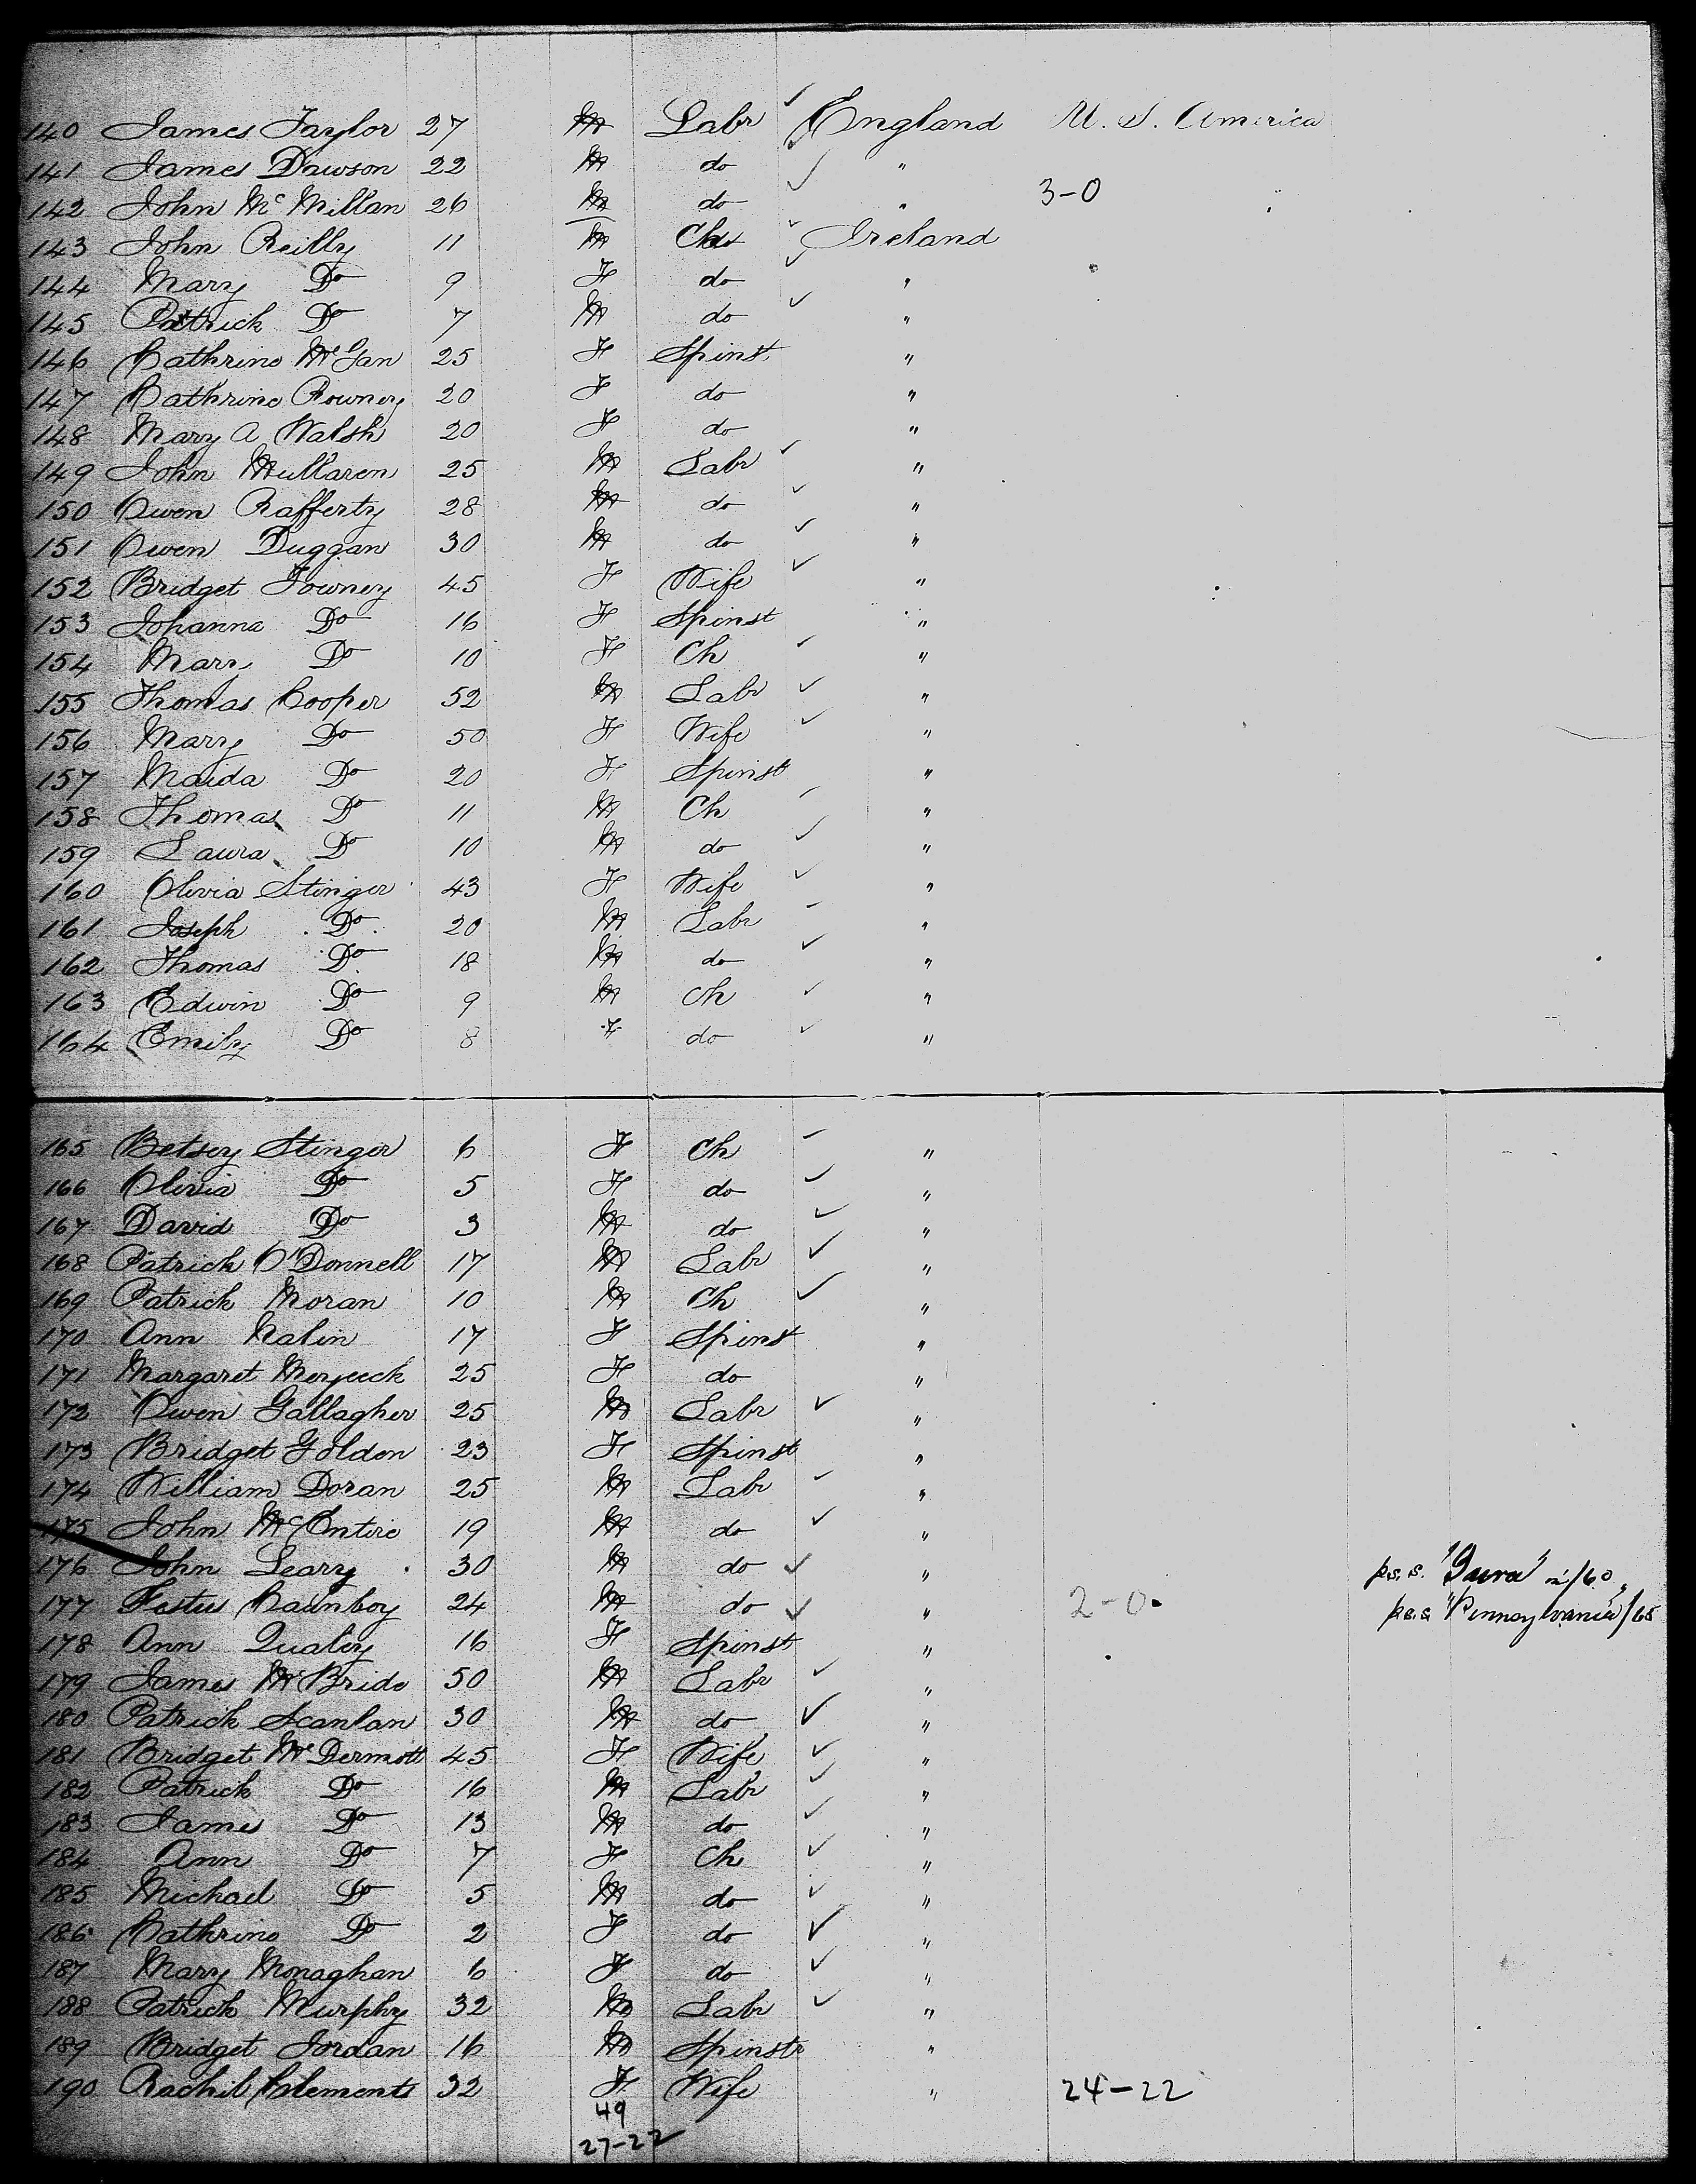 140 James Taylor 27 M Labr ✓ England U. S. America
141 James Dawson 22 M do ✓ "
142 John Mc Millan 26 M do ✓ " 3-0
143 John Reilly 11 M Ch ✓ Ireland
144 Mary Do 9 F do ✓ "
145 Patrick Do 7 M do ✓ "
146 Cathrine McGan 25 F Spinst "
147 Cathrine Rowney 20 F do "
148 Mary A Walsh 20 F do "
149 John Mullaren 25 M Labr ✓ "
150 Owen Rafferty 28 M do ✓ "
151 Owen Duggan 30 M do ✓ "
152 Bridget Towney 45 F Wife ✓ "
153 Johanna Do 16 F Spinst "
154 Mary Do 10 F Ch ✓ "
155 Thomas Cooper 52 M Labr ✓ "
156 Mary Do 50 F Wife ✓ "
157 Maida Do 20 F Spinst "
158 Thomas Do 11 M Ch ✓ "
159 Laura Do 10 M do ✓ "
160 Olivia Stinger 43 F Wife ✓ "
161 Joseph Do 20 M Labr ✓ "
162 Thomas Do 18 M do ✓ "
163 Edwin Do 9 M Ch ✓ "
164 Emily Do 8 F do ✓ "
165 Betsey Stinger 6 F Ch ✓ "
166 Olivia Do 5 F do ✓ "
167 David Do 3 M do ✓ "
168 Patrick O'Donnell 17 M Labr ✓ "
169 Patrick Moran 10 M Ch ✓ "
170 Ann Nalin 17 F Spinst "
171 Margaret 25 F do "
172 Owen Gallagher 25 M Labr ✓ "
173 Bridget Golden 23 F Spinst "
174 William Doran 25 M Labr ✓ "
175 John McEntire 19 M do ✓ "
176 John Leary 30 M do ✓ " p.s.s. "Jura" /60
177 Festus 24 M do ✓ " 2-0 p.s.s. "Pennsylvania" /65
178 Ann Qualey 16 F Spinst "
179 James McBride 50 M Labr ✓ "
180 Patrick Scanlan 30 M do ✓ "
181 Bridget McDermott 45 F Wife ✓ "
182 Patrick Do 16 M Labr ✓ "
183 James Do 13 M do ✓ "
184 Ann Do 7 F Ch ✓ "
185 Michael Do 5 M do ✓ "
186 Cathrine Do 2 F do ✓ "
187 Mary Monaghan 6 F do ✓ "
188 Patrick Murphy 32 M Labr ✓ "
189 Bridget Jordan 16 M Spinstr "
190 Rachil Clements 32 F Wife " 24-22
49
27-22